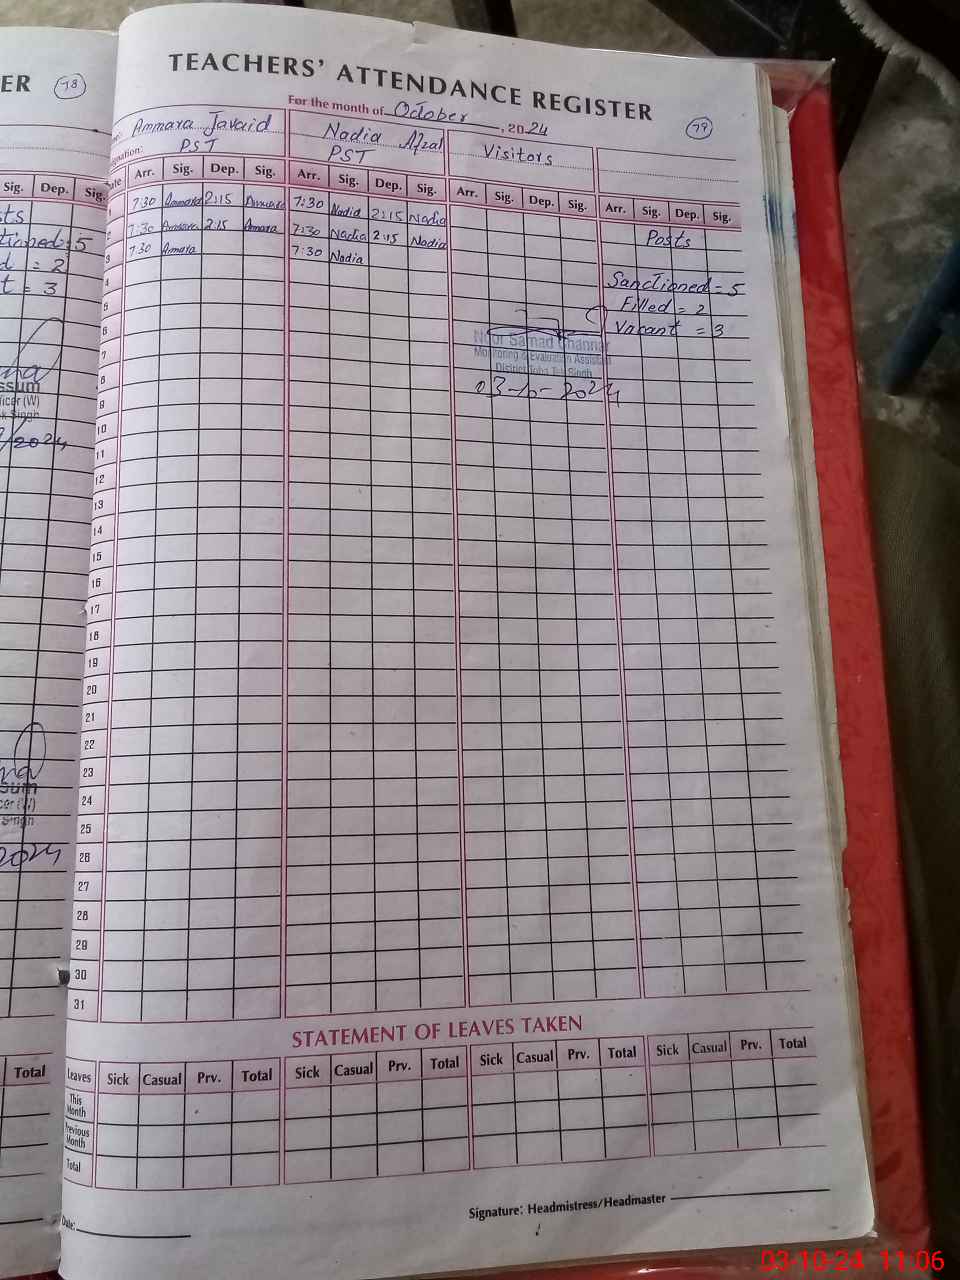 ER 78
Sig. Dep. Sig.
= 5
= 2
= 3
ssum
icer (W)
Singh
2024
Total
TEACHERS' ATTENDANCE REGISTER
For the month of October, 2024 79
Ammara Javaid Nadia Afzal Visitors
PST PST
Arr. Sig. Dep. Sig. Arr. Sig. Dep. Sig. Arr. Sig. Dep. Sig. Arr. Sig. Dep. Sig.
1 7:30 Ammara 2:15 Ammara 7:30 Nadia 2:15 Nadia
2 7:30 Ammara 2:15 Amara 7:30 Nadia 2:15 Nadia Posts
3 7:30 Amara 7:30 Nadia
4 Sanctioned = 5
5 Filled = 2
6 Vacant = 3
Noor Samad Channar
7 Monitoring & Evaluation Assistant
District Toba Tek Singh
8 03-10-2024
9
10
11
12
13
14
15
16
17
18
19
20
21
22
23
24
25
26
27
28
29
30
31
STATEMENT OF LEAVES TAKEN
Leaves Sick Casual Prv. Total Sick Casual Prv. Total Sick Casual Prv. Total Sick Casual Prv. Total
This Month
Previous Month
Total
Date:
Signature: Headmistress/Headmaster
03-10-24 11:06